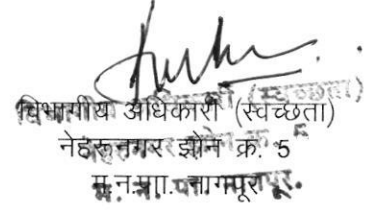 विभागीय अधिकारी (स्वच्छता)
नेहरूनगर झोन क्र. 5
म.न.पा. नागपूर